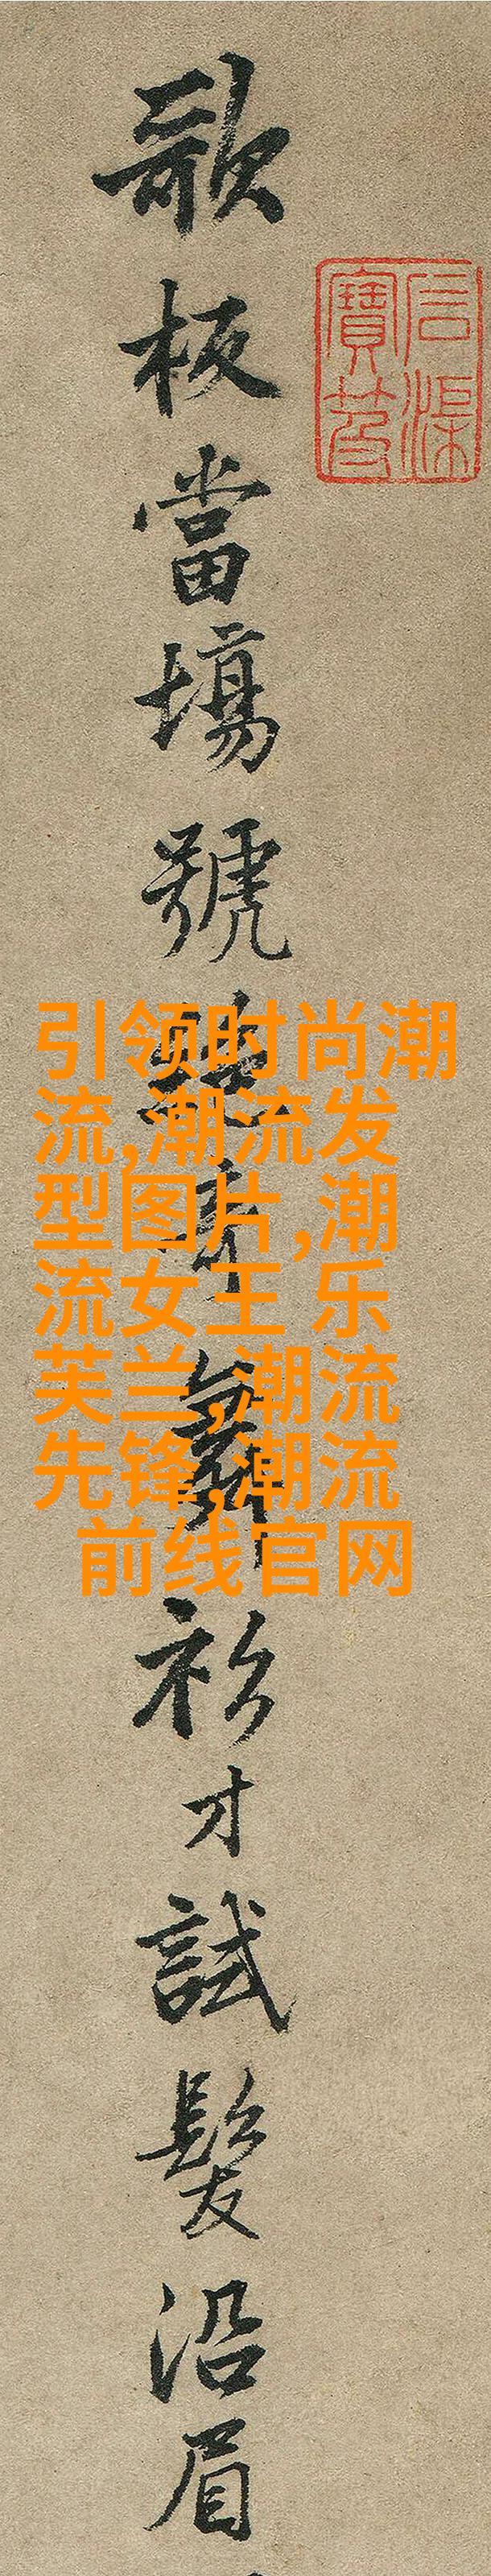 歌板當場號舞衫才試髮沿眉
石渠寶笈
引领时尚潮
流,潮流发
型图片,潮
流女王 乐
芙兰,潮流
先锋,潮流
前线官网